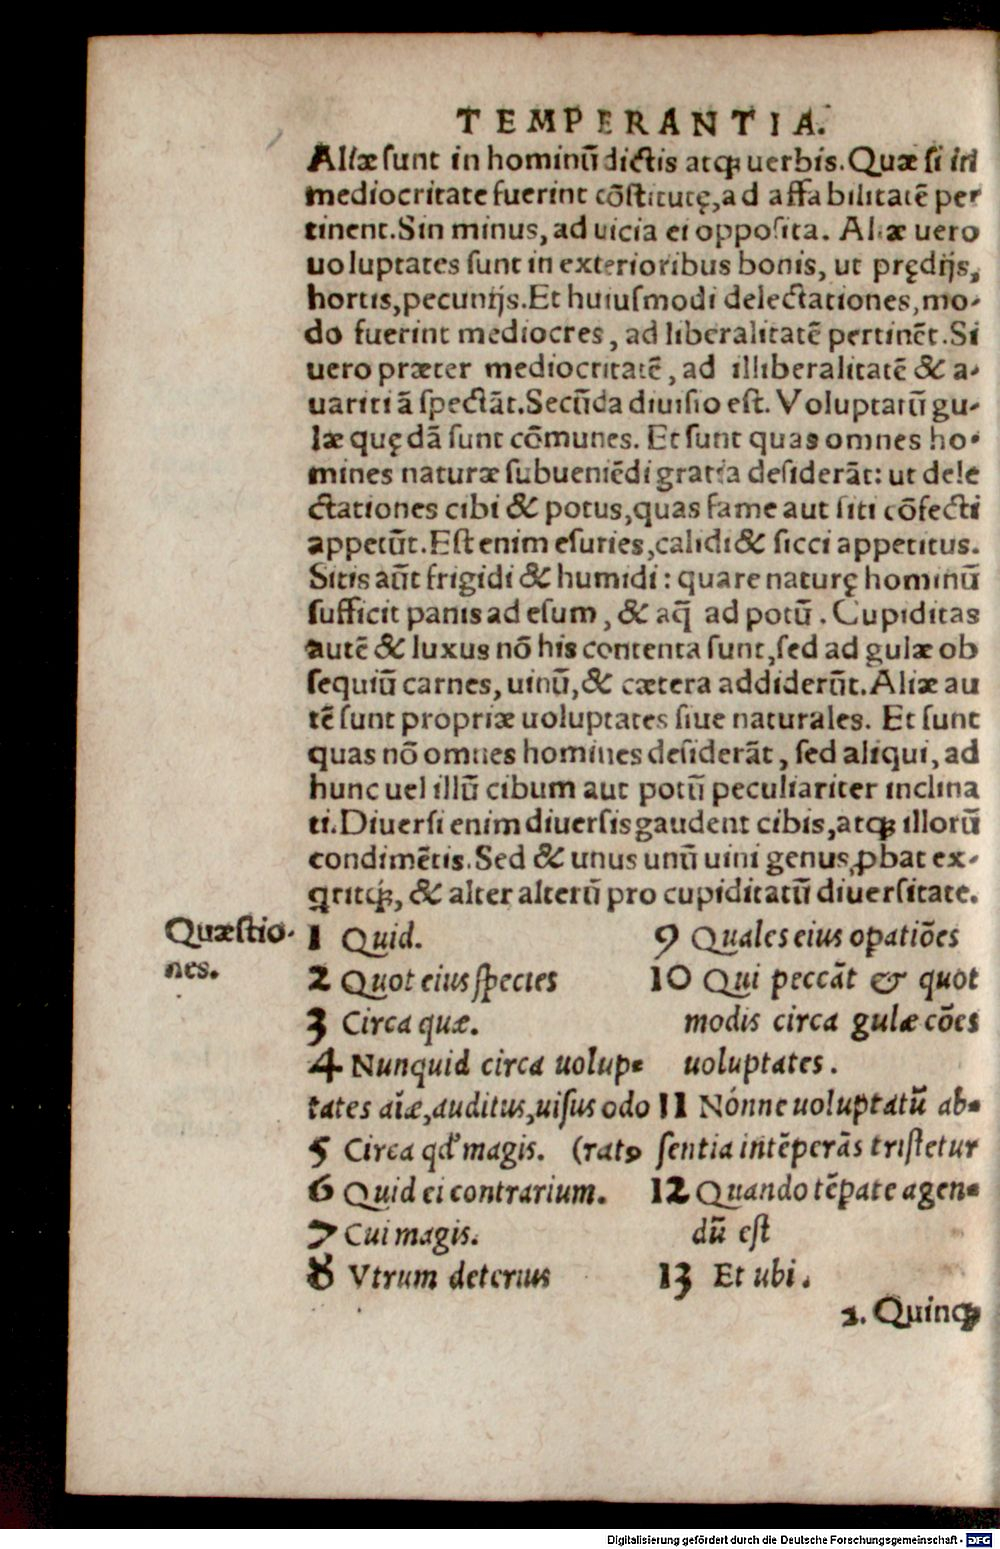 TEMPERANTIA.
Aliæ sunt in hominū dictis atqꝫ uerbis. Quæ si in
mediocritate fuerint cōstitutę, ad affabilitatē per
tinent. Sin minus, ad uicia ei opposita. Aliæ uero
uoluptates sunt in exterioribus bonis, ut prędijs,
hortis, pecunijs. Et huiusmodi delectationes, mo-
do fuerint mediocres, ad liberalitatē pertinēt. Si
uero præter mediocritatē, ad illiberalitatē & a-
uaritiā spectāt. Secūda diuisio est. Voluptatū gu-
læ quędā sunt cōmunes. Et sunt quas omnes ho-
mines naturæ subueniēdi gratia desiderāt: ut dele
ctationes cibi & potus, quas fame aut siti cōfecti
appetūt. Est enim esuries, calidi & sicci appetitus.
Sitis aūt frigidi & humidi: quare naturę hominū
sufficit panis ad esum, & aq̄ ad potū. Cupiditas
autē & luxus nō his contenta sunt, sed ad gulæ ob
sequiū carnes, uinū, & cætera addiderūt. Aliæ au
tē sunt propriæ uoluptates siue naturales. Et sunt
quas nō omnes homines desiderāt, sed aliqui, ad
hunc uel illū cibum aut potū peculiariter inclina
ti. Diuersi enim diuersis gaudent cibis, atqꝫ illorū
condimētis. Sed & unus unū uini genus ꝓbat ex-
qritqꝫ, & alter alterū pro cupiditatū diuersitate.
Quæstio-
nes.
1 Quid.
2 Quot eius species
3 Circa quæ.
4 Nunquid circa uolup-
tates aīæ, auditus, uisus odo
5 Circa qd' magis. (ratꝰ
6 Quid ei contrarium.
7 Cui magis.
8 Vtrum deterius
9 Quales eius opatiōes
10 Qui peccāt & quot
modis circa gulæ cōes
uoluptates.
11 Nónne uoluptatū ab-
sentia intēperās tristetur
12 Quando tēpate agen-
dū est
13 Et ubi.
2. Quinqꝫ
Digitalisierung gefördert durch die Deutsche Forschungsgemeinschaft - DFG